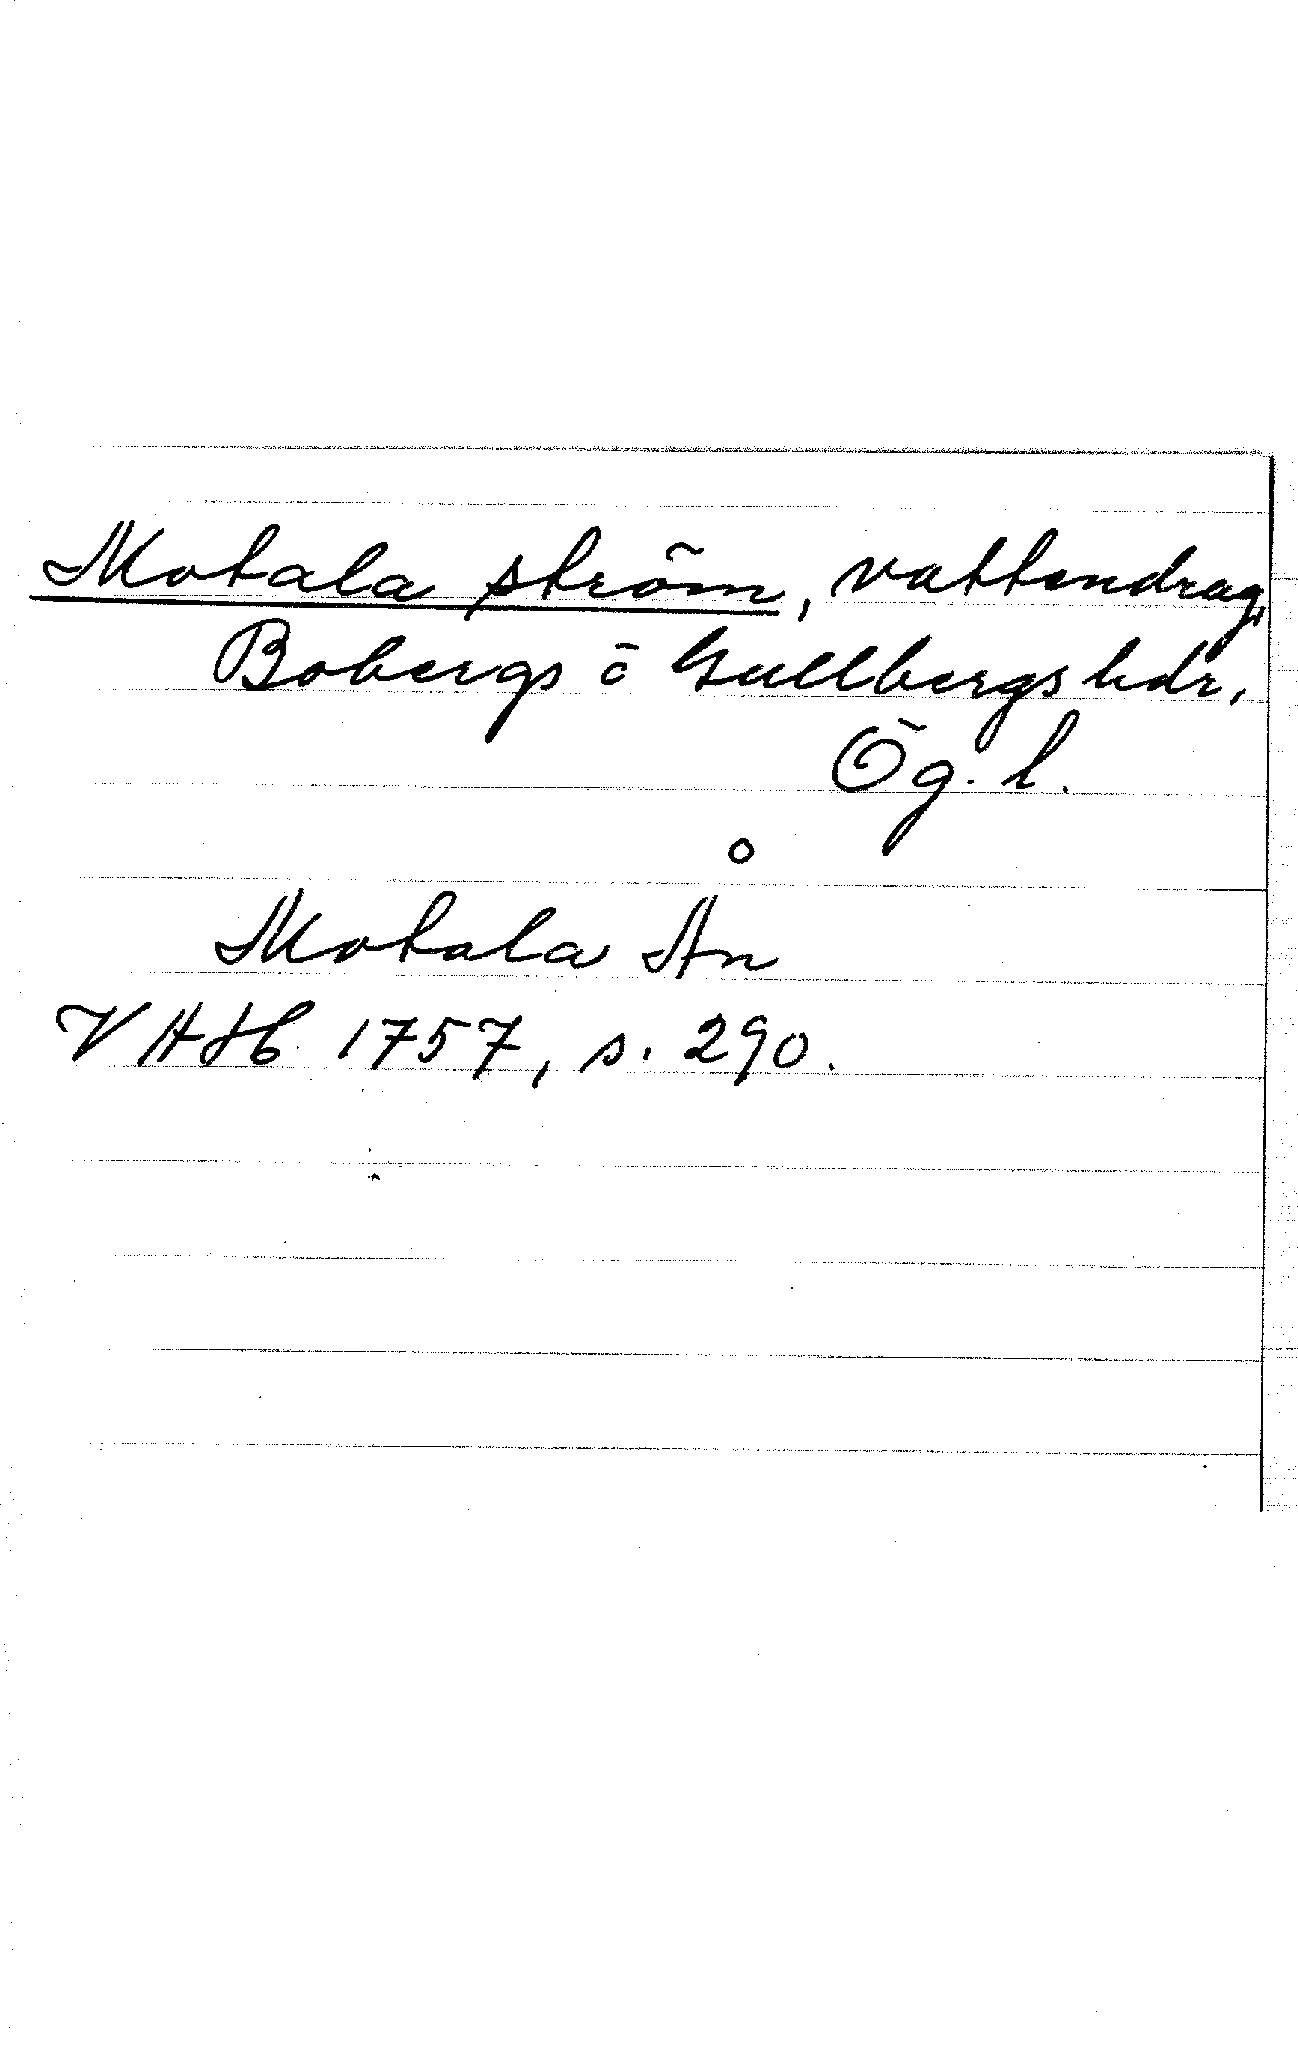 Motala ström, vattendrag,
Bobergs o Gullbergs hdr,
Ög. l.
Motala Ån
VHAH 1757, s. 290.